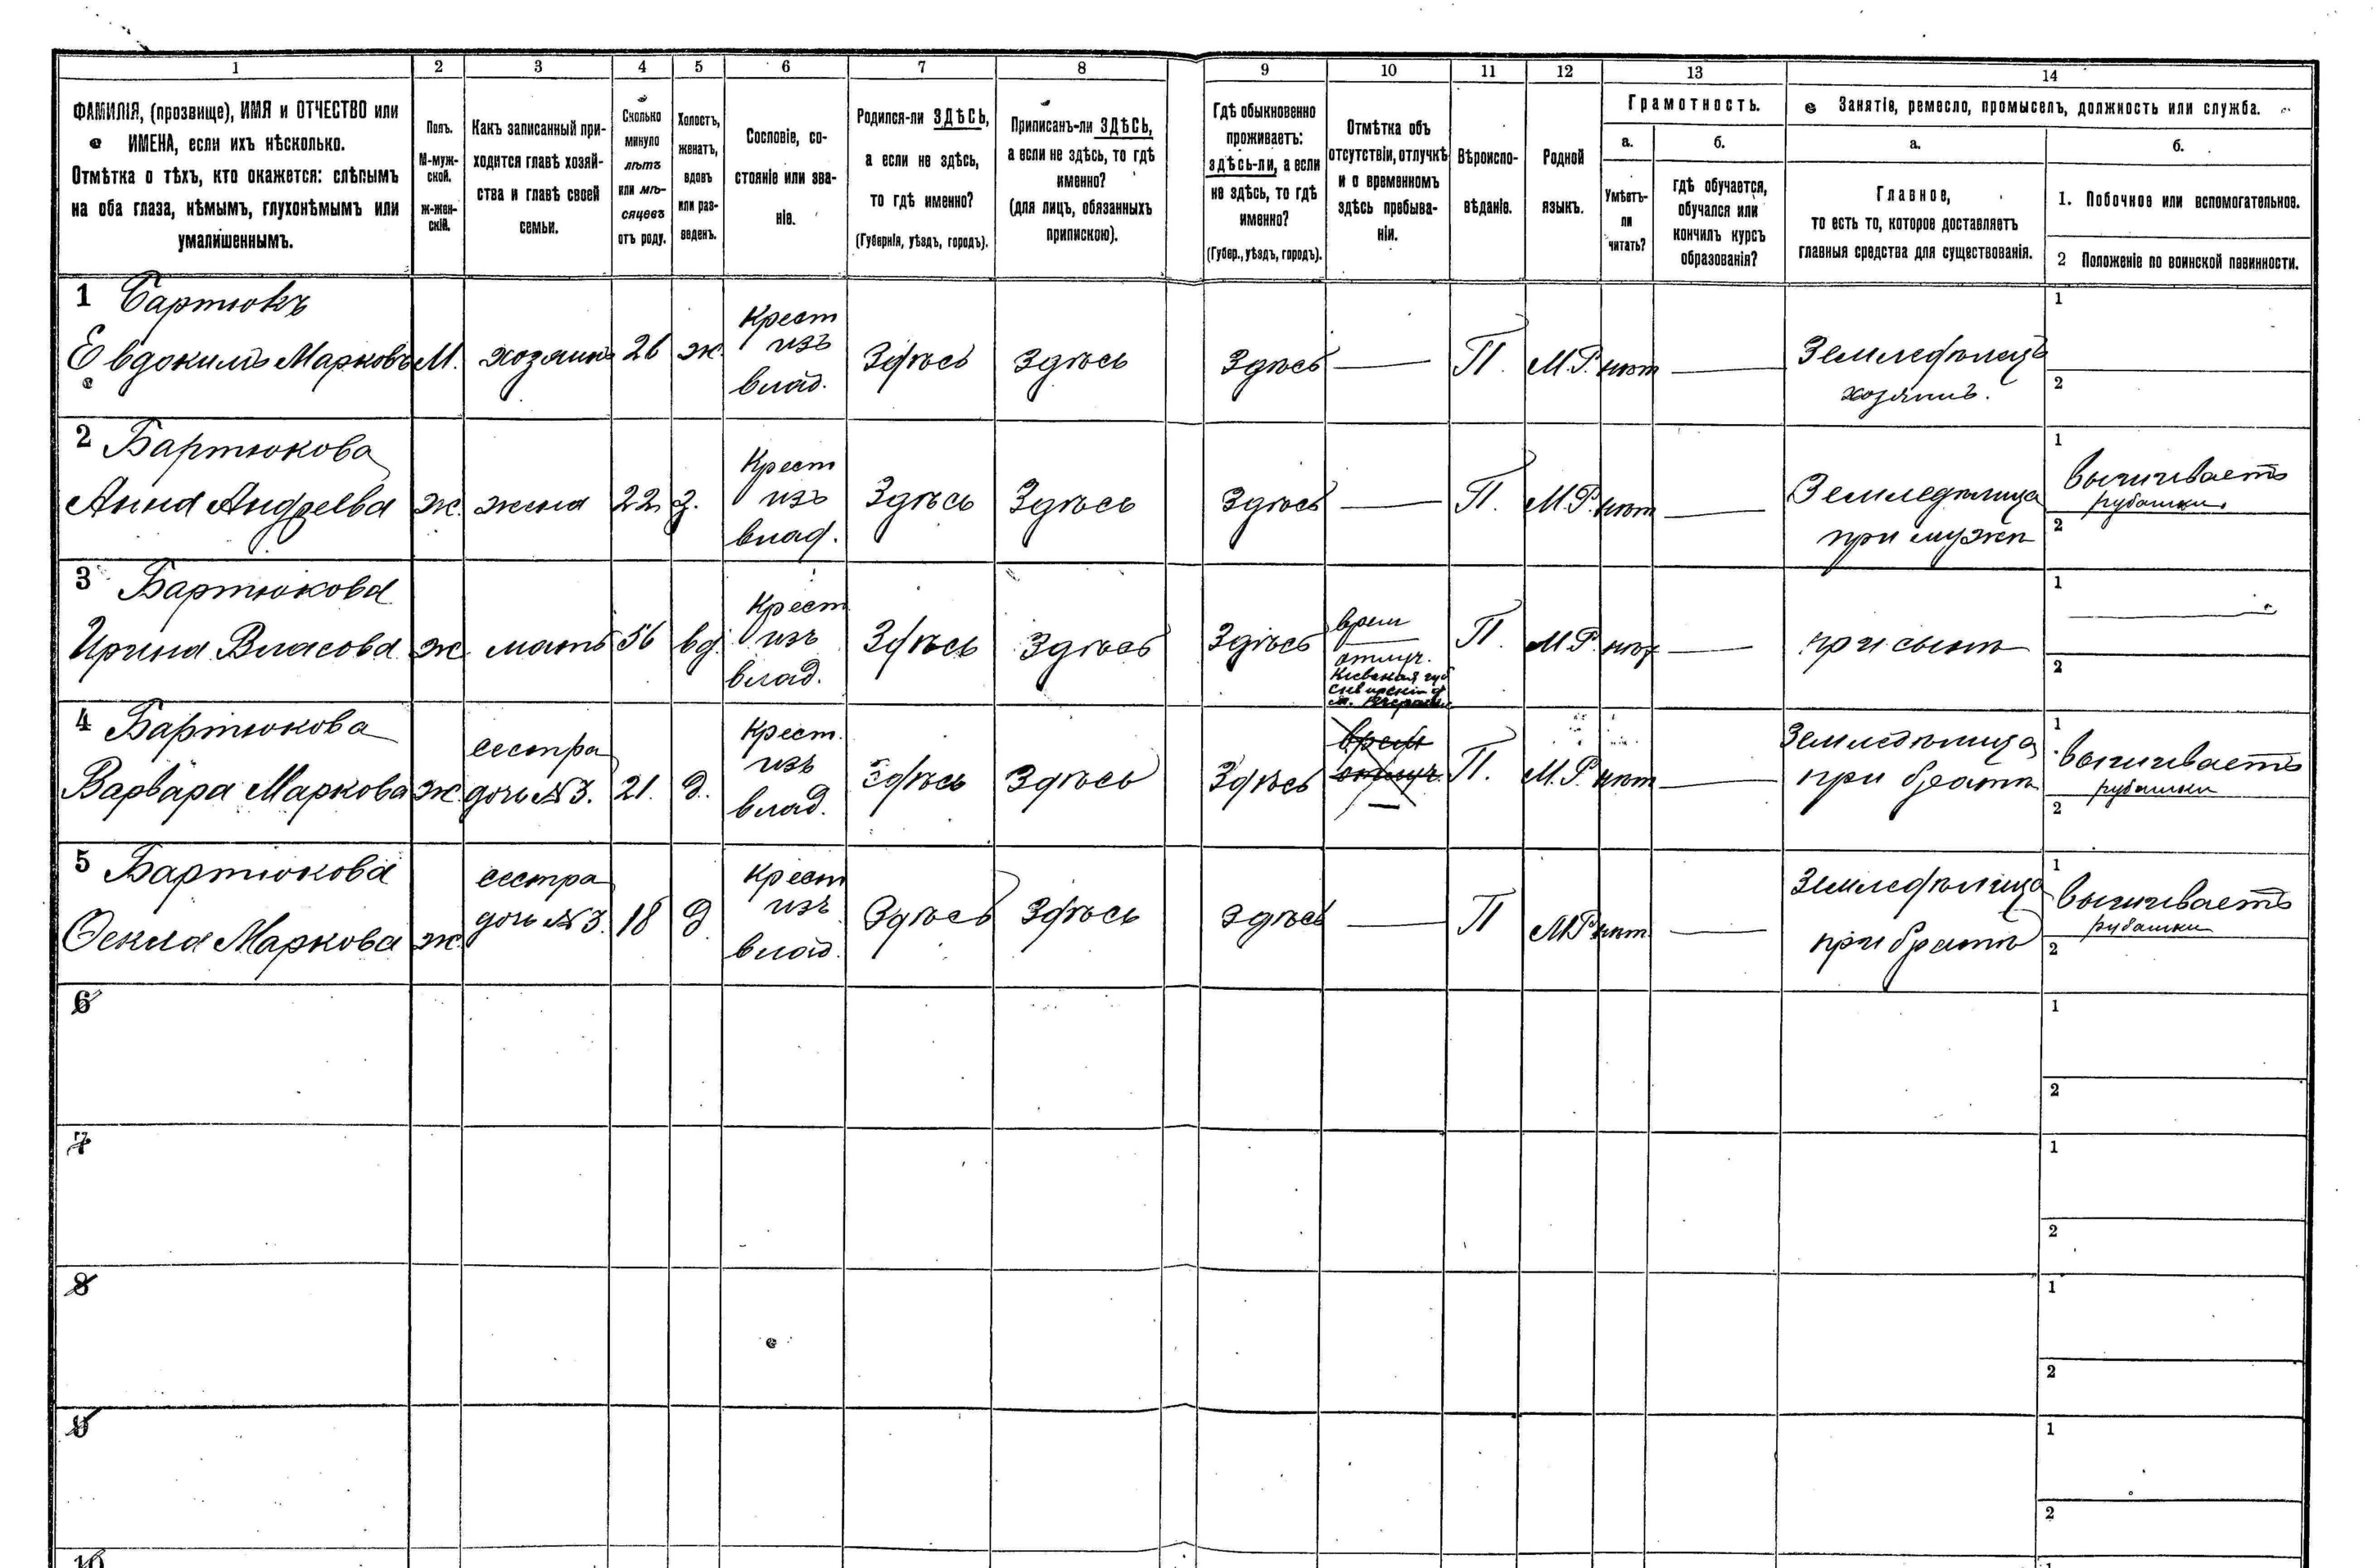 1
2
3
4
5
6
7
8
9
10
11
12
13
14
ФАМИЛІЯ, (прозвище), ИМЯ и ОТЧЕСТВО или
ИМЕНА, если ихъ нѣсколько.
Отмѣтка о тѣхъ, кто окажется: слѣпымъ
на оба глаза, нѣмымъ, глухонѣмымъ или
умалишеннымъ.
Полъ.
М-муж-
ской.
Ж-жен-
скій.
Какъ записанный при-
ходится главѣ хозяй-
ства и главѣ своей
семьи.
Сколько
минуло
лѣтъ
или мѣ-
сяцевъ
отъ роду.
Холостъ,
женатъ,
вдовъ
или раз-
веденъ.
Сословіе, со-
стояніе или зва-
ніе.
Родился-ли ЗДѢСЬ,
а если не здѣсь,
то гдѣ именно?
(Губернія, уѣздъ, городъ).
Приписанъ-ли ЗДѢСЬ,
а если не здѣсь, то гдѣ
именно?
(для лицъ, обязанныхъ
припискою).
Гдѣ обыкновенно
проживаетъ:
здѣсь-ли, а если
не здѣсь, то гдѣ
именно?
(Губер., уѣздъ, городъ).
Отмѣтка объ
отсутствіи, отлучкѣ
и о временномъ
здѣсь пребыва-
ніи.
Вѣроиспо-
вѣданіе.
Родной
языкъ.
Грамотность.
а.
Умѣетъ-
ли
читать?
б.
гдѣ обучается,
обучался или
кончилъ курсъ
образованія?
Занятіе, ремесло, промыселъ, должность или служба.
а.
Главное,
то есть то, которое доставляетъ
главныя средства для существованія.
б.
1. Побочное или вспомогательное.
2 Положеніе по воинской повинности.
1 Бартюкъ
Евдокимъ Марковъ
М.
хозяинъ
26
ж.
Крест
изъ
влад.
Здѣсь
Здѣсь
Здѣсь
—
П.
М.Р.
нѣт
—
Земледѣлецъ
хозяинъ.
1
2
2 Бартюкова
Анна Андреева
ж.
жена
22
з.
Крест
изъ
влад.
Здѣсь
Здѣсь
Здѣсь
—
П.
М.Р.
нѣт
—
Земледѣлица
при мужѣ
1
вышиваетъ
рубашки.
2
3 Бартюкова
Ирина Власова
ж
мать
56
вд.
Крест
изъ
влад.
Здѣсь
Здѣсь
Здѣсь
врем
отлуч.
Кіевская губ
П.
М.Р.
нѣт
—
при сынѣ
1
—
2
4 Бартюкова
Варвара Маркова
ж.
сестра
дочь №3.
21.
д.
Крест.
изъ
влад.
Здѣсь
Здѣсь
Здѣсь
врем
отлуч.
—
П.
М.Р.
нѣт
—
Земледѣлица
при братѣ
1
вышиваетъ
рубашки
2
5 Бартюкова
Ѳекла Маркова
ж.
сестра
дочь №3.
18
д
Крест
изъ
влад.
Здѣсь
Здѣсь
Здѣсь
—
П
М.Р.
нѣт
—
Земледѣлица
при братѣ
1
вышиваетъ
рубашки
2
6
1
2
7
1
2
8
1
2
9
1
2
10
1